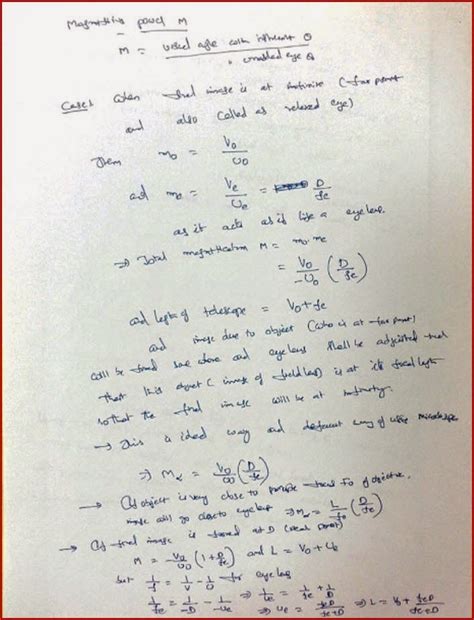 Magnifying power M
M = visual angle with instrument θ / unaided eye θ
Case1 when final image is at infinite (far point
and also called as relaxed eye)
Then m₀ = V₀/U₀
and me = Ve/Ue = D/fe
as it acts as is like a eye lens
⇒ Total magnification M = m₀ · me
= V₀/-U₀ (D/fe)
and length of telescope = V₀ + fe
and image due to object (who is at far point)
will be formed some where and eye lens shall be adjusted such
that this object (image of field lens) is at its focal length
so that the final image will be at infinity.
→ This is ideal way and different way of using microscope
⇒ M∝ = V₀/U₀ (D/fe)
→ If object is very close to principle focal F₀ of objective,
image will go close to eye lens ⇒ M∝ = L/f₀ (D/fe)
→ If final image is formed at D (near point)
M = V₀/U₀ (1 + D/fe) and L = V₀ + Ue
but 1/f = 1/V - 1/U for eye lens
1/fe = 1/-D - 1/-Ue ⇒ 1/Ue = 1/fe + 1/D
⇒ Ue = feD/fe+D ⇒ L = V₀ + feD/fe+D